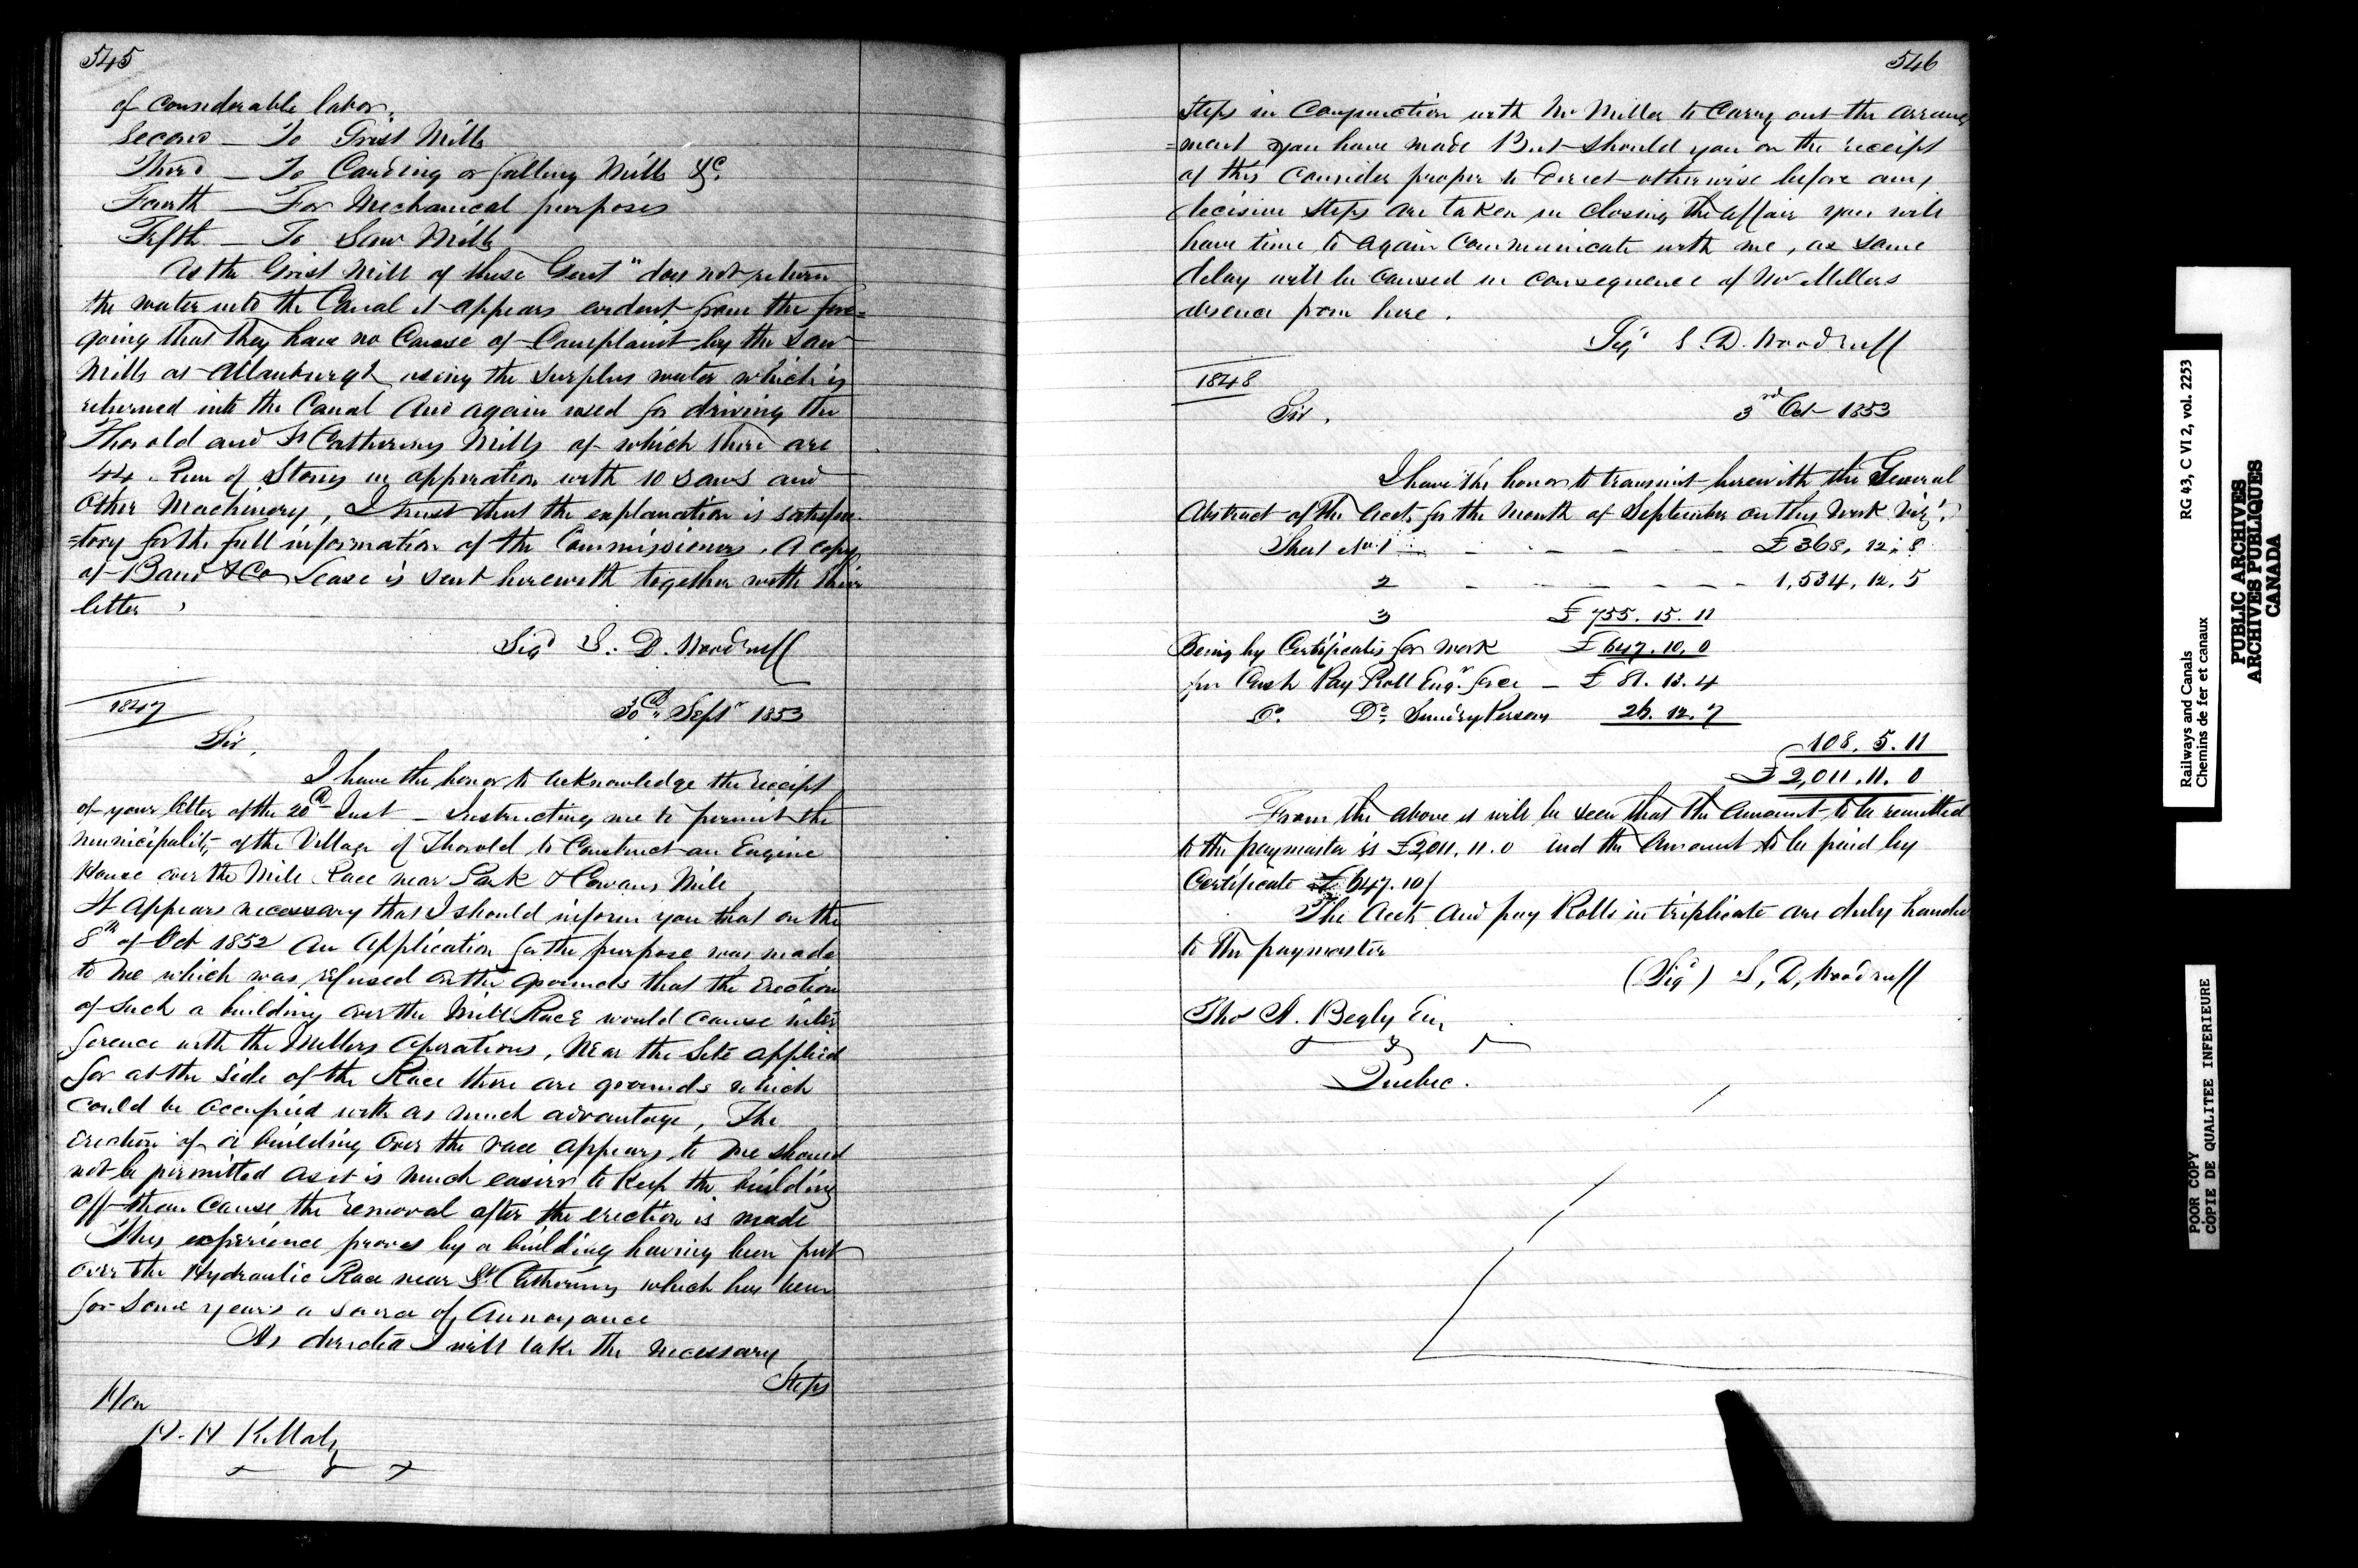 545
of considerable labor.
Second — To Grist Mills
Third — To Carding or fulling Mills &c.
Fourth — For Mechanical purposes
Fifth — To Saw Mills
As the Grist Mill of these Gent" does not return
the water into the Canal it appears evident from the fore=
going that they have no Cause of Complaint by the Saw
Mills at Allanburgh using the Surplus water which is
returned into the Canal And again used for driving the
Thorold and St Catherines Mills of which there are
44 Run of Stones in opperation with 10 Saws and
Other Machinery, I trust that the explanation is satisfac
=tory for the full information of the Commissioners. A copy
of Band & Co Lease is sent herewith together with their
letter
Sigd S. D. Woodruff
1847
30th Septr 1853
Sir,
I have the honor to acknowledge the receipt
of your letter of the 20th Inst — instructing me to permit the
Municipality of the Village of Thorold to Construct an Engine
House over the Mill Race near Park & Cowans Mill
It appears necessary that I should inform you that on the
8th of Oct 1852 An Application for the purpose was made
to me which was refused on the grounds that the Erection
of such a building over the Mill Race would cause inter
ference with the Millers Operations, Near the Site applied
for at the side of the Race there are grounds which
could be occupied with as much advantage, The
erection of a building over the race appears to me should
not be permitted as it is much easier to Keep the building
off than Cause the removal after the erection is made
This experience proves by a building having been put
over the Hydraulic Race near St Catherines which has been
for some years a source of Annoyance
As directed I will take the necessary
Steps
Hon
H. H Killaly
546
Steps in Conjunction with Mr Miller to Carry out the arrange
=ment you have made But should you on the receipt
of this Consider proper to direct otherwise before any
decisive steps are taken in closing the affair you will
have time to again Communicate with me, as some
delay will be caused in consequence of Mr Millers
absence from here.
Sigd S. D. Woodruff
1848
Sir.
3rd Oct 1853
I have the honor to transmit herewith the General
Abstract of the Accts for the Month of September on this Work Viz.
Sheet No. 1 — — — — £368, 12, 8
2 — — — — 1,534, 12, 5
3 £755. 15. 11
Being by Certificates for work £647. 10. 0
for Cash Pay Roll Engr. force — £81. 13. 4
Do. Do. Sundry Persons 26. 12. 7
108. 5. 11
£2,011. 11. 0
From the above it will be seen that the Amount to be remitted
to the paymaster is £2,011. 11. 0 and the Amount to be paid by
Certificate £647. 10/
The Accts And pay Rolls in triplicate are duly handed
to the paymaster
(Sigd) S, D, Woodruff
Thos A. Begly Esq
Quebec.
RG 43, C VI 2, vol. 2253
Railways and Canals
Chemins de fer et canaux
PUBLIC ARCHIVES
ARCHIVES PUBLIQUES
CANADA
POOR COPY
COPIE DE QUALITEE INFERIEURE